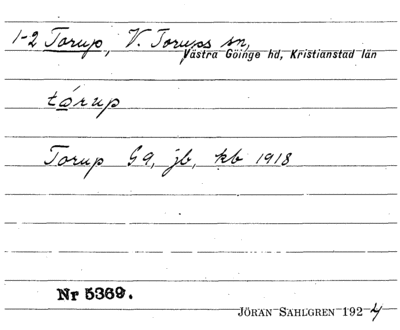 1-2 Torup, V. Torups sn,
Västra Göinge hd, Kristianstad län
tórup
Torup G9, jb, kb 1918
Nr 5369.
JÖRAN SAHLGREN 1924